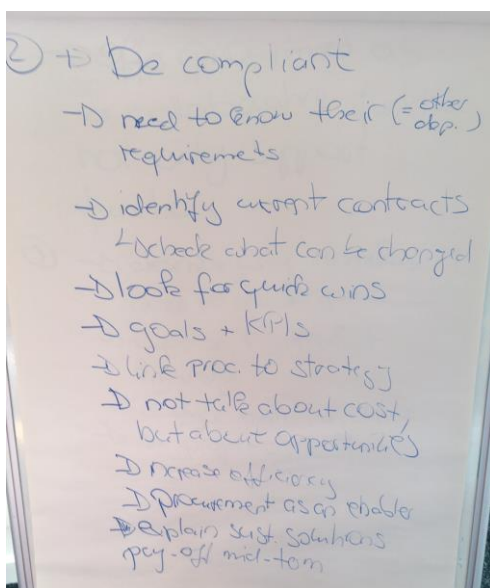 ② + Be compliant
→ need to know their (= other dep.)
requiremets
→ identify current contracts
↳ check what can be changed
→ look for quick wins
→ goals + KPIs
→ link proc. to strategy
→ not talk about cost,
but about opportunities
→ increase efficiency
→ procurement as an enabler
→ explain sust. solutions
pay-off mid-term